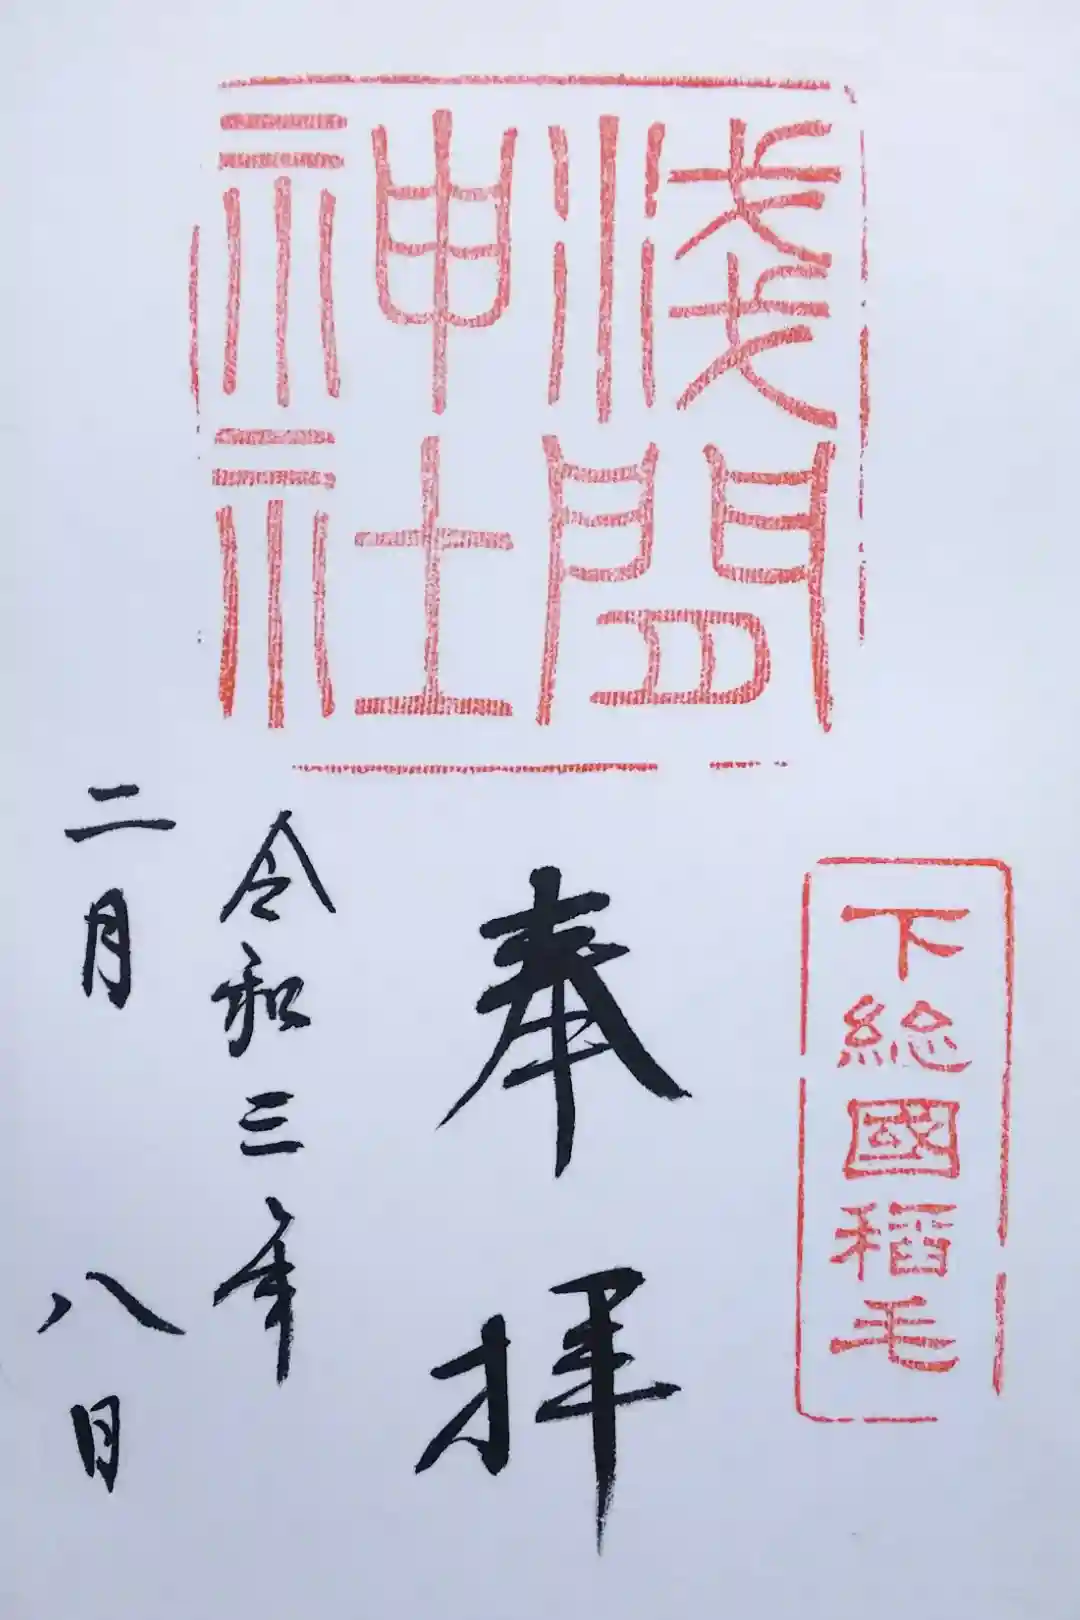 下総國稻毛
浅間
神社
奉拝
令和三年
二月八日